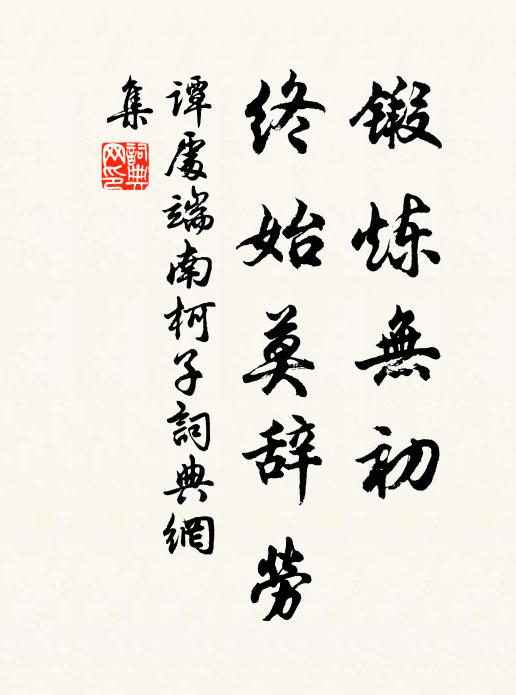 锻炼無初
终始莫辞勞
谭處端南柯子詞典網
集
詞典
网印